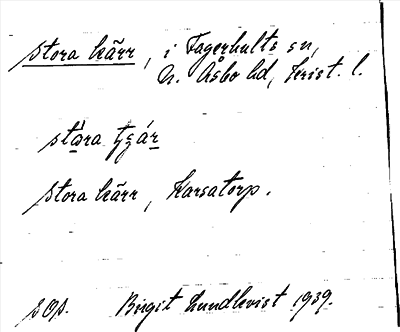 Stora kärr, i Fagerhults sn,
N. Åsbo hd, Krist. l.
stora
Stora kärr, Harsatorp.
Birgit Lundkvist 1939.